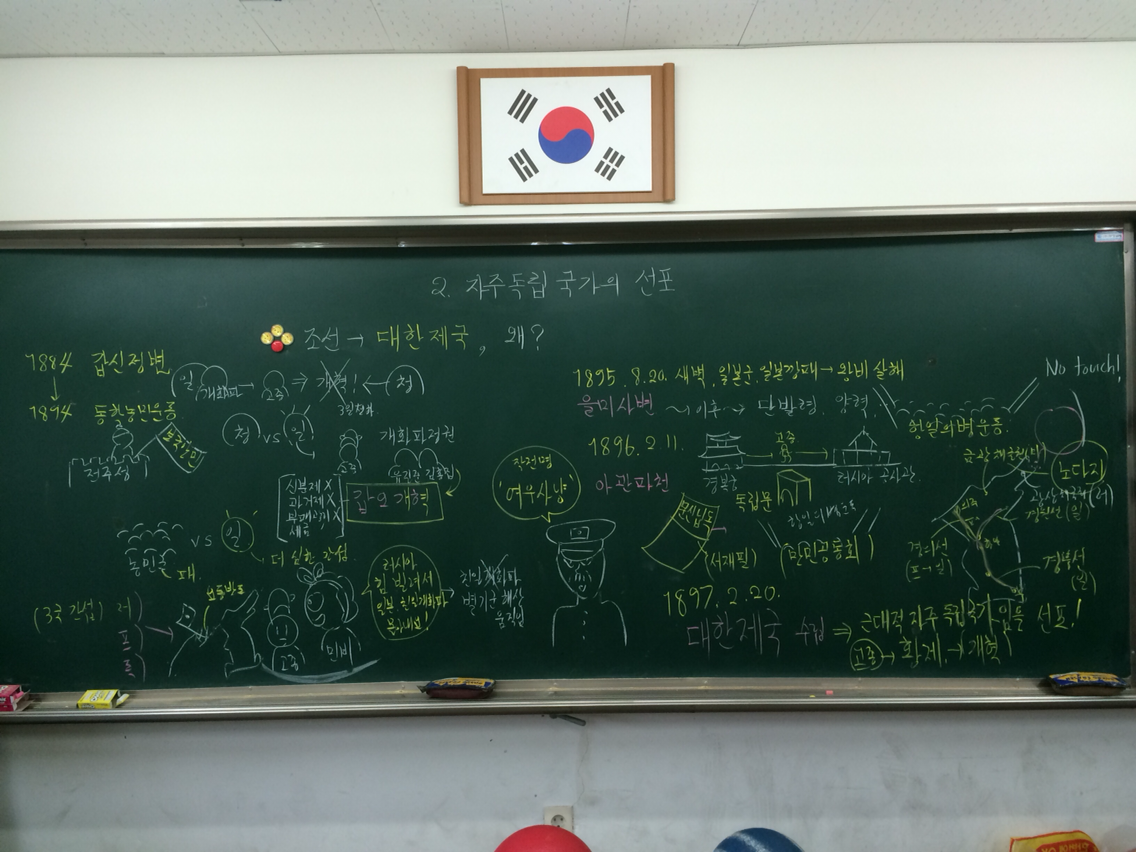 2. 자주독립 국가의 선포
조선 → 대한제국, 왜?
1884 갑신정변
일 개화파 → 고종 ⇒ 개혁! ← 청
3일천하
1894 동학농민운동
전주성
청 vs 일!
고종
개화파정권
김홍집
신분제 X
과거제 X
세금
갑오개혁
농민군 vs 일
패
더 심한 간섭
(3국 간섭) 러
프
독
요동반도
고종
민비
러시아
힘 빌려서
일본 친일개화파
몰아내요!
친일개화파
별기군 해산
움직임
작전명
'여우사냥'
1895. 8. 20. 새벽, 일본군, 일본깡패 → 왕비 살해
을미사변 ~ 이후 → 단발령, 양력,
항일의병운동.
1896. 2. 11.
아관파천
경복궁
고종
러시아 공사관
독립문
독립신문
(서재필)
만민공동회
No touch!
노다지
경의선
(프→일)
경부선
(일)
1897. 2. 20.
대한제국 수립 ⇒ 근대적 자주 독립국가임을 선포!
고종 → 황제 → 개혁